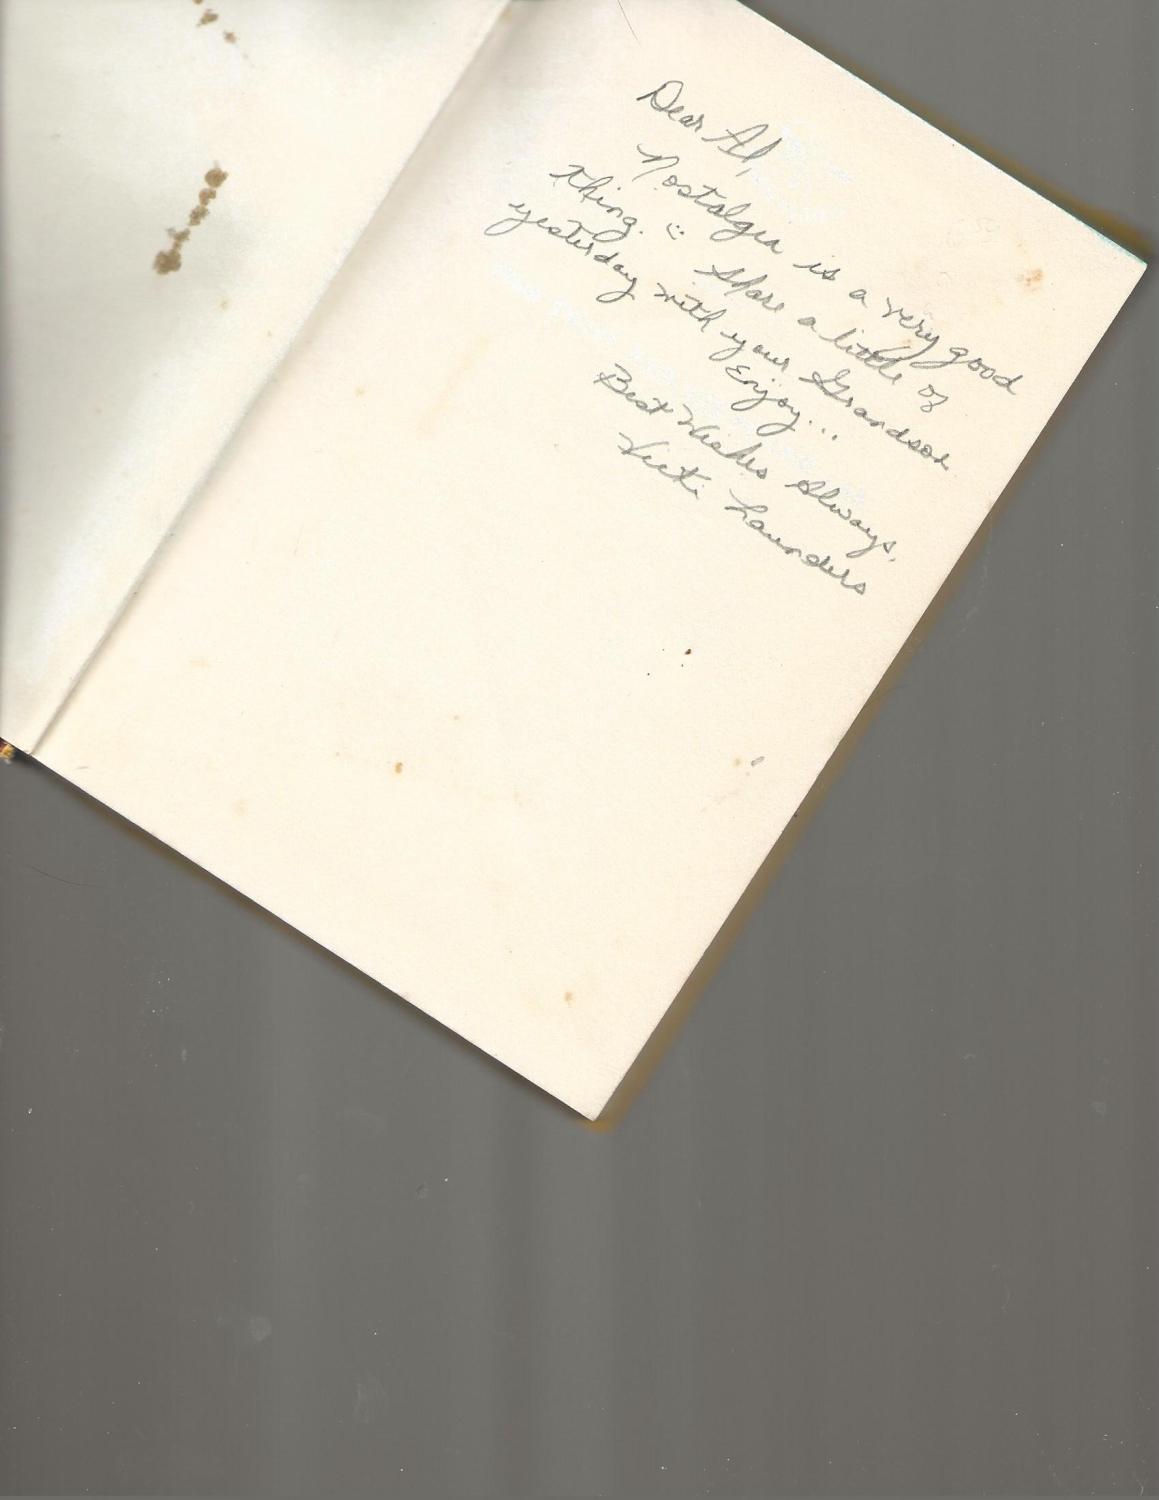 Dear Al,
Nostalgia is a very good
thing. :) Share a little of
yesterday with your Grandson
Enjoy...
Best Wishes Always,
Vicki Launders